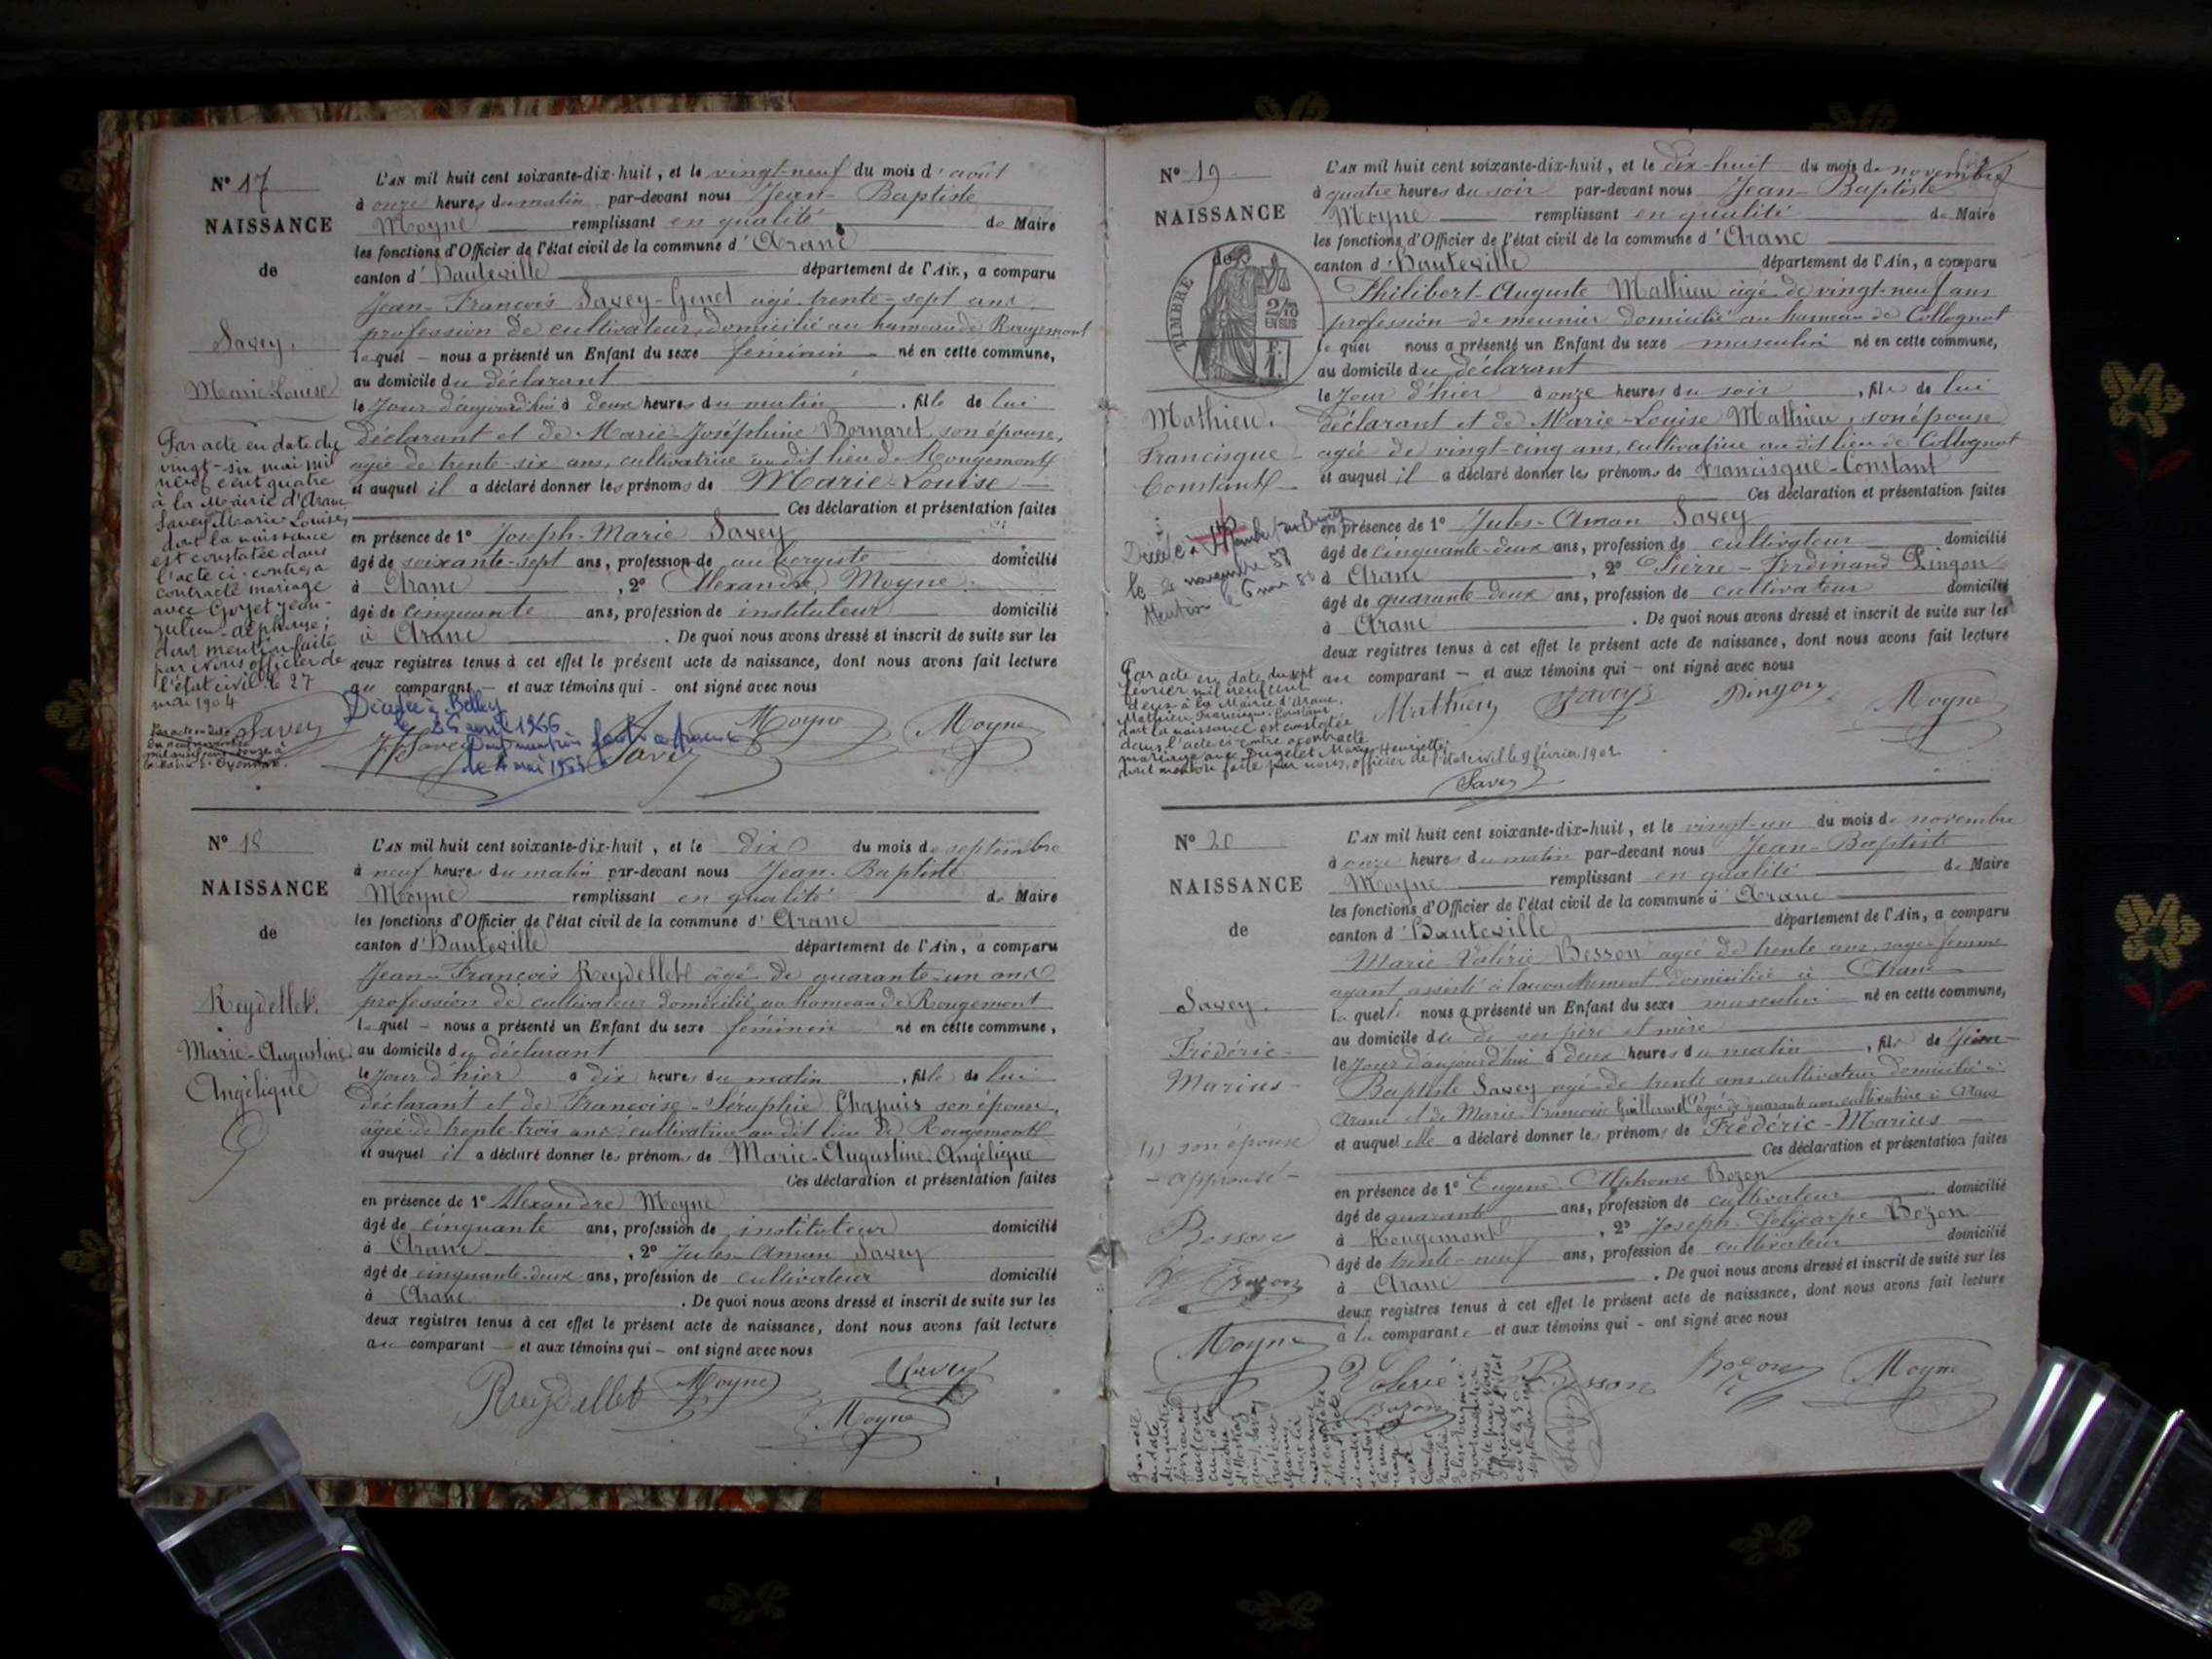 N° 17
NAISSANCE
de
Savey.
Marie-Louise
L'AN mil huit cent soixante-dix-huit, et le vingt-neuf du mois d'août
à onze heures du matin par-devant nous Jean-Baptiste
Moyne remplissant en qualité de Maire
les fonctions d'Officier de l'état civil de la commune d'Aranc
canton d'Hauteville département de l'Ain, a comparu
Jean-François Savey-Genet agé trente-sept ans
profession de cultivateur, domicilié au hameau de Rougemont
lequel nous a présenté un Enfant du sexe féminin né en cette commune,
au domicile du déclarant
le jour d'aujourd'hui à deux heures du matin, fille de lui
déclarant et de Marie-Joséphine Bornaret, son épouse,
agée de trente-six ans, cultivatrice au dit lieu de Rougemont
et auquel il a déclaré donner les prénoms de Marie-Louise
Ces déclaration et présentation faites
en présence de 1° Joseph-Marie Savey
âgé de soixante-sept ans, profession de aubergiste domicilié
à Aranc, 2° Alexandre Moyne
âgé de cinquante ans, profession de instituteur domicilié
à Aranc. De quoi nous avons dressé et inscrit de suite sur les
deux registres tenus à cet effet le présent acte de naissance, dont nous avons fait lecture
au comparant et aux témoins qui ont signé avec nous
Par acte en date du
vingt-six mai mil
neuf cent quatre
à la Mairie d'Aranc
Savey Marie Louise,
dont la naissance
est constatée dans
l'acte ci-contre, a
contracté mariage
avec Goyet Jean-
Julien-Alphonse;
dont mention faite
par Nous officier de
l'état civil le 27
mai 1904
Savey
Décédée à Belley
le 26 avril 1966
Savey Moyne Moyne
N° 18
NAISSANCE
de
Reydellet.
Marie-Augustine
Angélique
L'AN mil huit cent soixante-dix-huit, et le dix du mois de septembre
à neuf heures du matin par-devant nous Jean-Baptiste
Moyne remplissant en qualité de Maire
les fonctions d'Officier de l'état civil de la commune d'Aranc
canton d'Hauteville département de l'Ain, a comparu
Jean-François Reydellet âgé de quarante-un ans
profession de cultivateur domicilié au hameau de Rougemont
lequel nous a présenté un Enfant du sexe féminin né en cette commune,
au domicile du déclarant
le jour d'hier à dix heures du matin, fille de lui
déclarant et de Françoise-Séraphie Chapuis son épouse,
agée de trente-trois ans, cultivatrice au dit lieu de Rougemont
et auquel il a déclaré donner les prénoms de Marie-Augustine Angélique
Ces déclaration et présentation faites
en présence de 1° Alexandre Moyne
âgé de cinquante ans, profession de instituteur domicilié
à Aranc, 2° Jules-Aman Savey
âgé de cinquante-deux ans, profession de cultivateur domicilié
à Aranc. De quoi nous avons dressé et inscrit de suite sur les
deux registres tenus à cet effet le présent acte de naissance, dont nous avons fait lecture
au comparant et aux témoins qui ont signé avec nous
Reydellet Moyne Savey
Moyne
N° 19
NAISSANCE
de
TIMBRE
2/10
EN SUS
Mathieu.
Francisque
Constant
L'AN mil huit cent soixante-dix-huit, et le dix-huit du mois de novembre
à quatre heures du soir par-devant nous Jean-Baptiste
Moyne remplissant en qualité de Maire
les fonctions d'Officier de l'état civil de la commune d'Aranc
canton d'Hauteville département de l'Ain, a comparu
Philibert-Auguste Mathieu âgé de vingt-neuf ans
profession de meunier domicilié au hameau de Collognat
lequel nous a présenté un Enfant du sexe masculin né en cette commune,
au domicile du déclarant
le jour d'hier à onze heures du soir, fils de lui
déclarant et de Marie-Louise Mathieu, son épouse
agée de vingt-cinq ans, cultivatrice au dit lieu de Collognat
et auquel il a déclaré donner les prénoms de Francisque-Constant
Ces déclaration et présentation faites
en présence de 1° Jules-Aman Savey
âgé de cinquante-deux ans, profession de cultivateur domicilié
à Aranc, 2° Pierre-Ferdinand Pingon
âgé de quarante-deux ans, profession de cultivateur domicilié
à Aranc. De quoi nous avons dressé et inscrit de suite sur les
deux registres tenus à cet effet le présent acte de naissance, dont nous avons fait lecture
au comparant et aux témoins qui ont signé avec nous
Mathieu Savey Pingon Moyne
Par acte en date du sept
février mil neuf cent
deux à la Mairie d'Aranc
Mathieu Francisque-Constant
dont la naissance est constatée
dans l'acte ci-contre a contracté
mariage avec Marie Henriette;
dont mention faite par nous, officier de l'état civil le 9 février 1902
Savey
N° 20
NAISSANCE
de
Savey.
Frédéric-
Marius
L'AN mil huit cent soixante-dix-huit, et le vingt-un du mois de novembre
à onze heures du matin par-devant nous Jean-Baptiste
Moyne remplissant en qualité de Maire
les fonctions d'Officier de l'état civil de la commune d'Aranc
canton d'Hauteville département de l'Ain, a comparu
Marie Valérie Besson agée de trente ans, sage-femme
ayant assisté à l'accouchement domiciliée à Aranc
laquelle nous a présenté un Enfant du sexe masculin né en cette commune,
au domicile de ses père et mère
le jour d'aujourd'hui à deux heures du matin, fils de Jean-
Baptiste Savey agé de trente ans, cultivateur domicilié à
Aranc et de Marie Françoise Guillermet agée de quarante ans, cultivatrice à Aranc
et auquel elle a déclaré donner les prénoms de Frédéric-Marius
Ces déclaration et présentation faites
en présence de 1° Eugène-Alphonse Bozon
âgé de quarante ans, profession de cultivateur domicilié
à Rougemont, 2° Joseph-Policarpe Bozon
âgé de trente-neuf ans, profession de cultivateur domicilié
à Aranc. De quoi nous avons dressé et inscrit de suite sur les
deux registres tenus à cet effet le présent acte de naissance, dont nous avons fait lecture
à la comparante et aux témoins qui ont signé avec nous
(1) son épouse
- approuvé -
Besson
Moyne
Besson Bozon Moyne